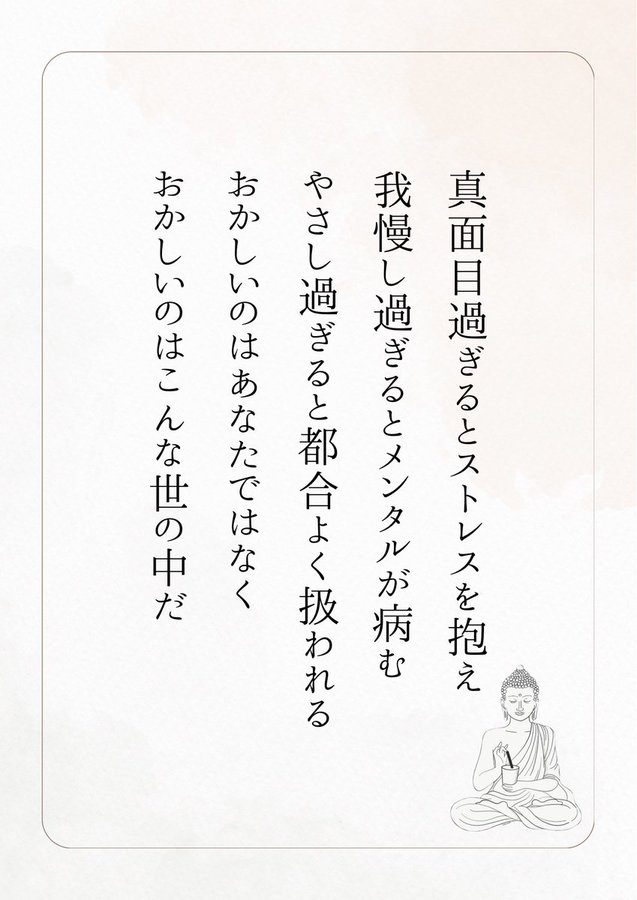 真面目過ぎるとストレスを抱え
我慢し過ぎるとメンタルが病む
やさし過ぎると都合よく扱われる
おかしいのはあなたではなく
おかしいのはこんな世の中だ